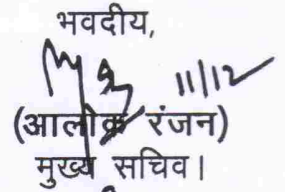 भवदीय,
11/12
(आलोक रंजन)
मुख्य सचिव।